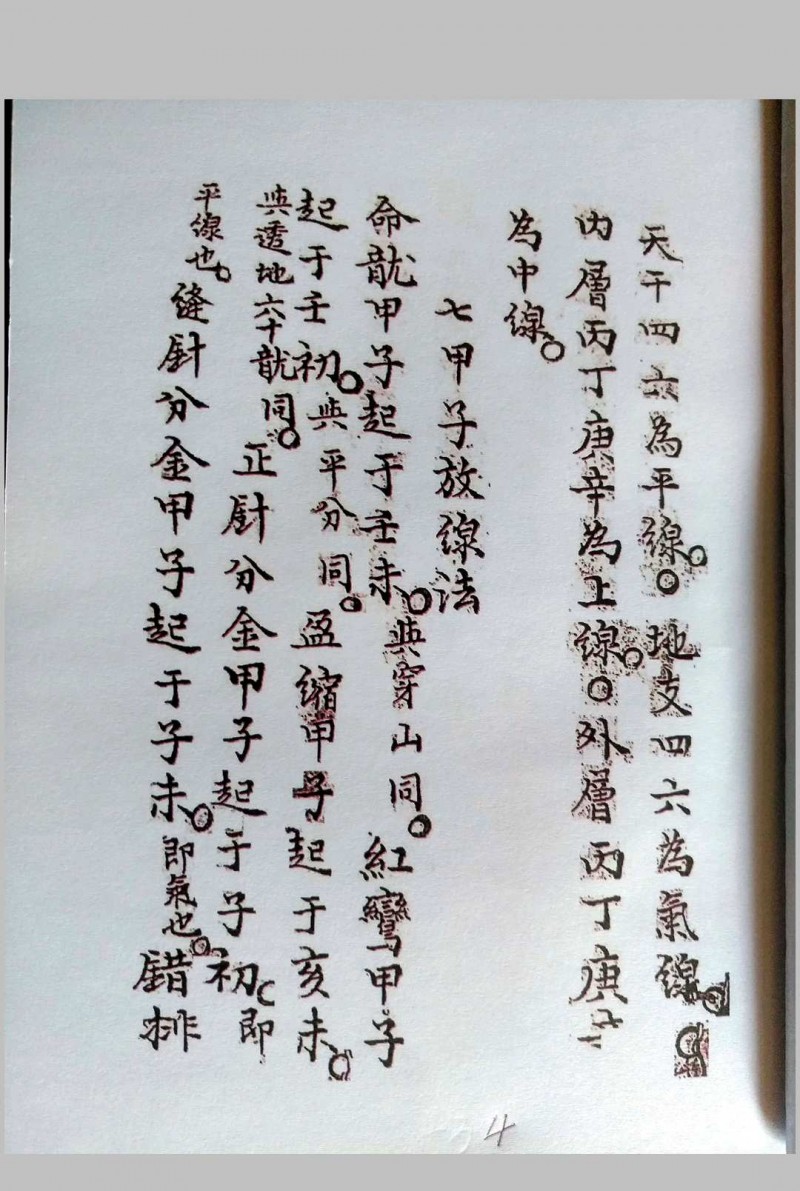 天干四六為平線。○地支四六為氣線。○
内層丙丁庚辛為上線。○外層丙丁庚
為中線。
七甲子放線法
命龍甲子起于壬未。與穿山同。紅鸞甲子
起于壬初。與平分同。盈縮甲子起于亥未。
與透地六十龍同。正針分金甲子起于子初。即
平線也。縫針分金甲子起于子未。即氣也。錯排
4